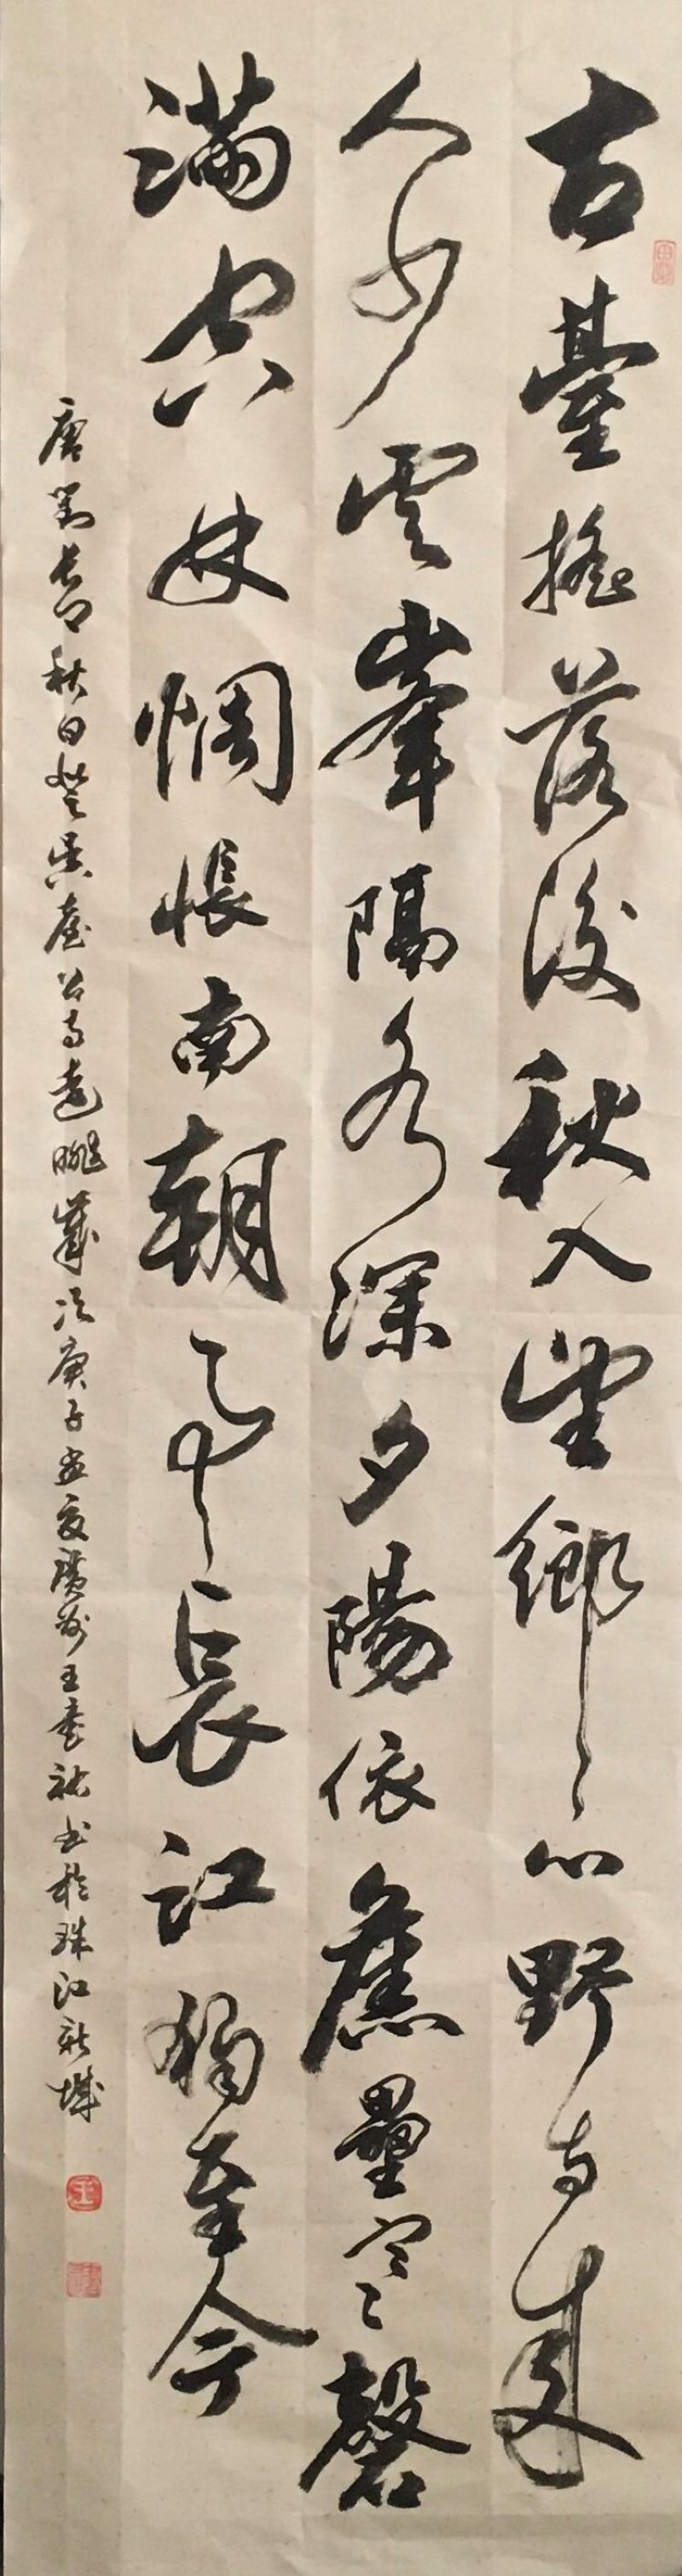 古臺搖落後秋入望鄉心野寺來
人少雲峯隔水深夕陽依舊壘寒磬
滿空林惆悵南朝事長江獨至今
唐劉長卿秋日登吳臺上寺遠眺歲次庚子孟夏廣州王書社書於珠江新城